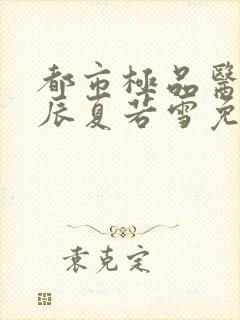 都市極品醫
辰夏若雪免
袁克定